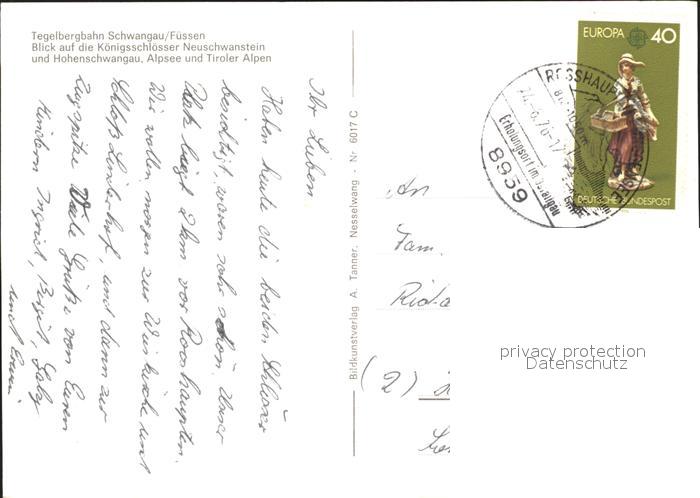 Tegelbergbahn Schwangau/Füssen
Blick auf die Königsschlösser Neuschwanstein
und Hohenschwangau, Alpsee und Tiroler Alpen
Ihr Lieben
Haben heute die beiden Schlösser
besichtigt, waren sehr schön. Unser
Platz liegt 2 km vor Rosshaupten.
Wir wollen morgen zur Wieskirche und
Schloß Linderhof, und dann zur
Zugspitze. Viele Grüße von Euren
Kindern Ingrid, Birgit, Gaby
und Erwin
Bildkunstverlag A. Tanner, Nesselwang - Nr. 6017 C
EUROPA CEPT 40
DEUTSCHE BUNDESPOST
ROSSHAUP
24.-6.76-17
Erholungsort im Ostallgäu
8959
An
Fam.
(2)
privacy protection
Datenschutz